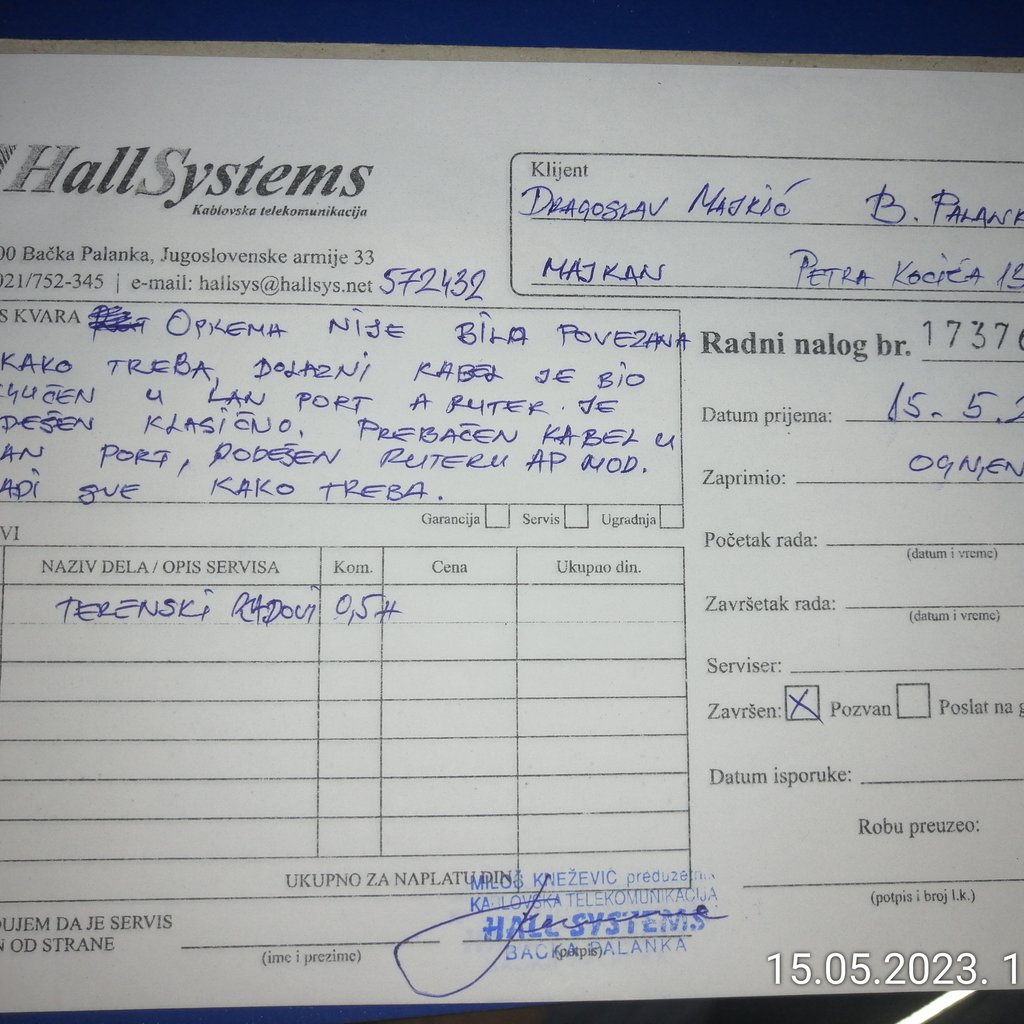 HallSystems
Kablovska telekomunikacija
00 Bačka Palanka, Jugoslovenske armije 33
021/752-345 | e-mail: hallsys@hallsys.net 572432
Klijent
DRAGOSLAV MAJKIĆ B. PALANK
MAJKAN PETRA KOČIĆA 13
S KVARA OPREMA NIJE BILA POVEZANA
KAKO TREBA, DOLAZNI KABEL JE BIO
LJUČEN U LAN PORT A RUTER JE
DEŠEN KLASIČNO. PREBAČEN KABEL U
AN PORT, PODEŠEN RUTERU AP MOD.
ADI SVE KAKO TREBA.
Garancija Servis Ugradnja
Radni nalog br. 17376
Datum prijema: 15. 5. 2
Zaprimio: OGNJEN
Početak rada:
(datum i vreme)
Završetak rada:
(datum i vreme)
Serviser:
Završen: X Pozvan Poslat na g
Datum isporuke:
Robu preuzeo:
(potpis i broj l.k.)
VI
NAZIV DELA / OPIS SERVISA Kom. Cena Ukupno din.
TERENSKI RADOVI 0,5H
UKUPNO ZA NAPLATU DIN
MILOŠ KNEŽEVIĆ preduzetnik
KABLOVSKA TELEKOMUNIKACIJA
HALL SYSTEMS
BAČKA PALANKA
ĐUJEM DA JE SERVIS
N OD STRANE
(ime i prezime)
(potpis)
15.05.2023. 1